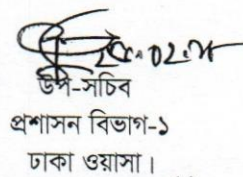 উপ-সচিব
প্রশাসন বিভাগ-১
ঢাকা ওয়াসা।